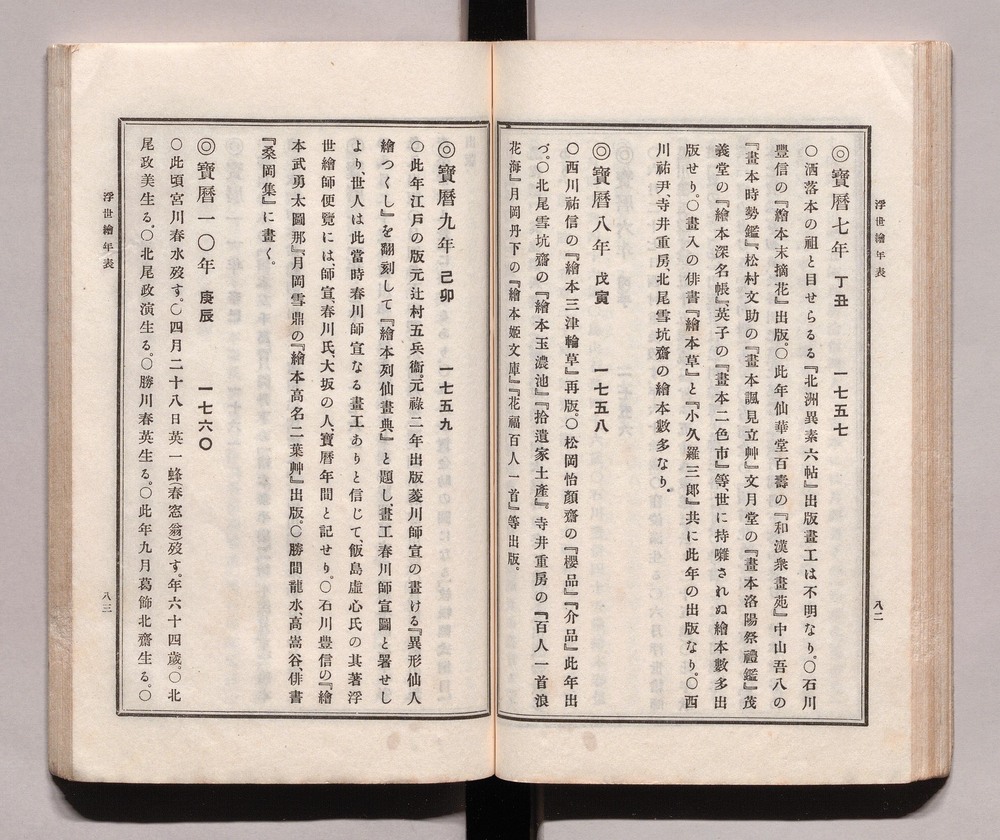 浮世繪年表
八二
◎寶曆七年 丁丑 一七五七
〇洒落本の祖と目せらるる『北洲異素六帖』出版畫工は不明なり。〇石川
豐信の『繪本末摘花』出版。〇此年仙華堂百壽の『和漢衆畫苑』中山吾八の
『畫本時勢鑑』松村文助の『畫本諷見立艸』文月堂の『畫本洛陽祭禮鑑』茂
義堂の『繪本深名帳』英子の『畫本二色市』等世に持囃されぬ繪本數多出
版せり。〇畫入の俳書『繪本草』と『小久羅三郎』共に此年の出版なり。〇西
川祐尹、寺井重房、北尾雪坑齋の繪本數多なり。
◎寶曆八年 戊寅 一七五八
〇西川祐信の『繪本三津輪草』再版。〇松岡怡顏齋の『櫻品』『介品』此年出
づ。〇北尾雪坑齋の『繪本玉濃池』『拾遺家土產』寺井重房の『百人一首浪
花海』月岡丹下の『繪本姬文庫』『花福百人一首』等出版。
◎寶曆九年 己卯 一七五九
〇此年江戶の版元辻村五兵衞、元祿二年出版菱川師宣の畫ける『異形仙人
繪つくし』を翻刻して『繪本列仙畫典』と題し、畫工春川師宣圖と署せし
より、世人は此當時春川師宣なる畫工ありと信じて、飯島虛心氏の其著浮
世繪師便覽には、師宣、春川氏、大坂の人、寶曆年間と記せり。〇石川豐信の『繪
本武勇太圖那』『月岡雪鼎の『繪本高名二葉艸』出版。〇勝間龍水、高嵩谷、俳書
『桑岡集』に畫く。
◎寶曆一〇年 庚辰 一七六〇
〇此頃宮川春水歿す。〇四月二十八日英一蜂(春窓翁)歿す。年六十四歲。〇北
尾政美生る。〇北尾政演生る。〇勝川春英生る。〇此年九月葛飾北齋生る。〇
浮世繪年表
八三